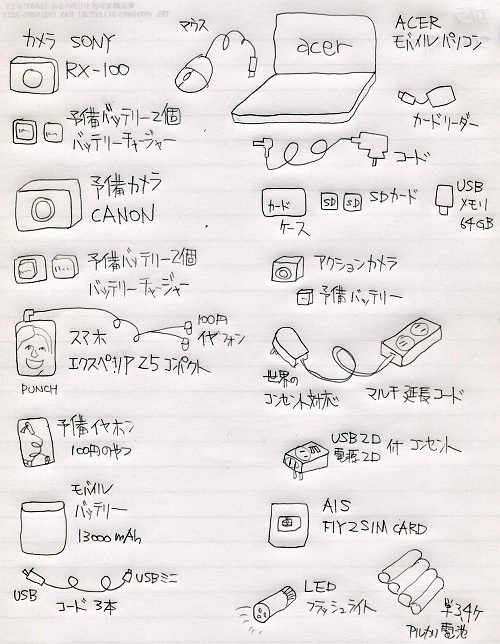 カメラ SONY
RX-100
予備バッテリー2個
バッテリーチャージャー
予備カメラ
CANON
予備バッテリー2個
バッテリーチャージャー
100円
イヤフォン
スマホ
エクスペリア Z5 コンパクト
PUNCH
予備イヤホン
100円のやつ
モバイル
バッテリー
13000mAh
USB
USBミニ
コード 3本
マウス
acer
ACER
モバイルパソコン
カードリーダー
コード
カード
ケース
SD
SD
SDカード
USB
メモリ
64GB
アクションカメラ
予備バッテリー
世界の
コンセント対応
マルチ延長コード
USB 2口
電源2口
付 コンセント
AIS
FLY 2 SIM CARD
LED
フラッシュライト
単3,4ケ
アルカリ電池